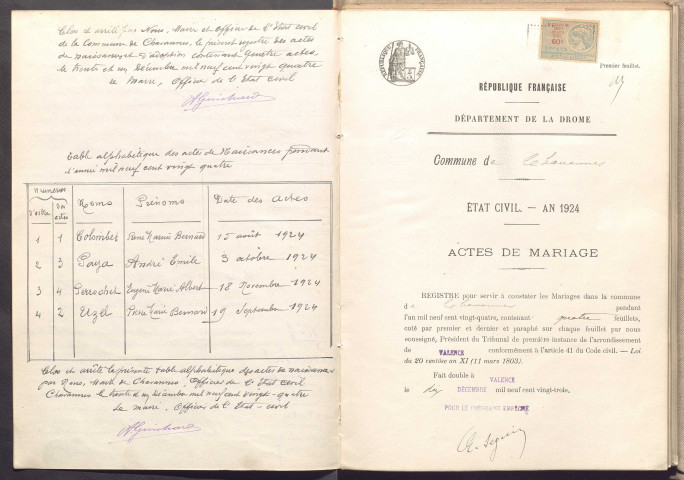 Clos et arrêté par Nous, Maire et Officier de l'Etat civil
de la Commune de Chavannes, le présent registre des actes
de naissances et d'adoption contenant quatre actes,
le trente et un Décembre mil neuf cent vingt quatre
Le Maire, Officier de l'Etat Civil
Table alphabétique des actes de Naissances pendant
l'année mil neuf cent vingt quatre
Numéros
d'ordre des actes Noms Prénoms Date des Actes
1 1 Colombet René Marius Bernard 15 août 1924
2 3 André Emile 3 octobre 1924
3 4 Perrochet Eugène Marie Albert 18 Novembre 1924
4 2 Uzel Bernard 19 Septembre 1924
Clos et arrêté la présente table alphabétique des actes de naissances
par Nous, Maire de Chavannes, Officier de l'Etat Civil
Chavannes le trente et un Décembre mil neuf cent vingt-quatre
Le Maire, Officier de l'Etat-civil
Premier feuillet.
RÉPUBLIQUE FRANÇAISE
DÉPARTEMENT DE LA DROME
Commune de Chavannes
ÉTAT CIVIL. — AN 1924
ACTES DE MARIAGE
REGISTRE pour servir à constater les Mariages dans la commune
de Chavannes pendant
l'an mil neuf cent vingt-quatre, contenant quatre feuillets,
coté par premier et dernier et paraphé sur chaque feuillet par nous
soussigné, Président du Tribunal de première instance de l'arrondissement
de VALENCE conformément à l'article 41 du Code civil. — Loi
du 20 ventôse an XI (11 mars 1803).
Fait double à VALENCE
le dix DÉCEMBRE mil neuf cent vingt-trois,
POUR LE PRÉSIDENT EMPÊCHÉ